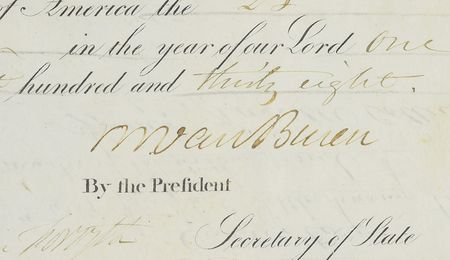 of America the 24
in the year of our Lord One
hundred and thirty eight.
MVanBuren
By the Preſident
Forsyth Secretary of State